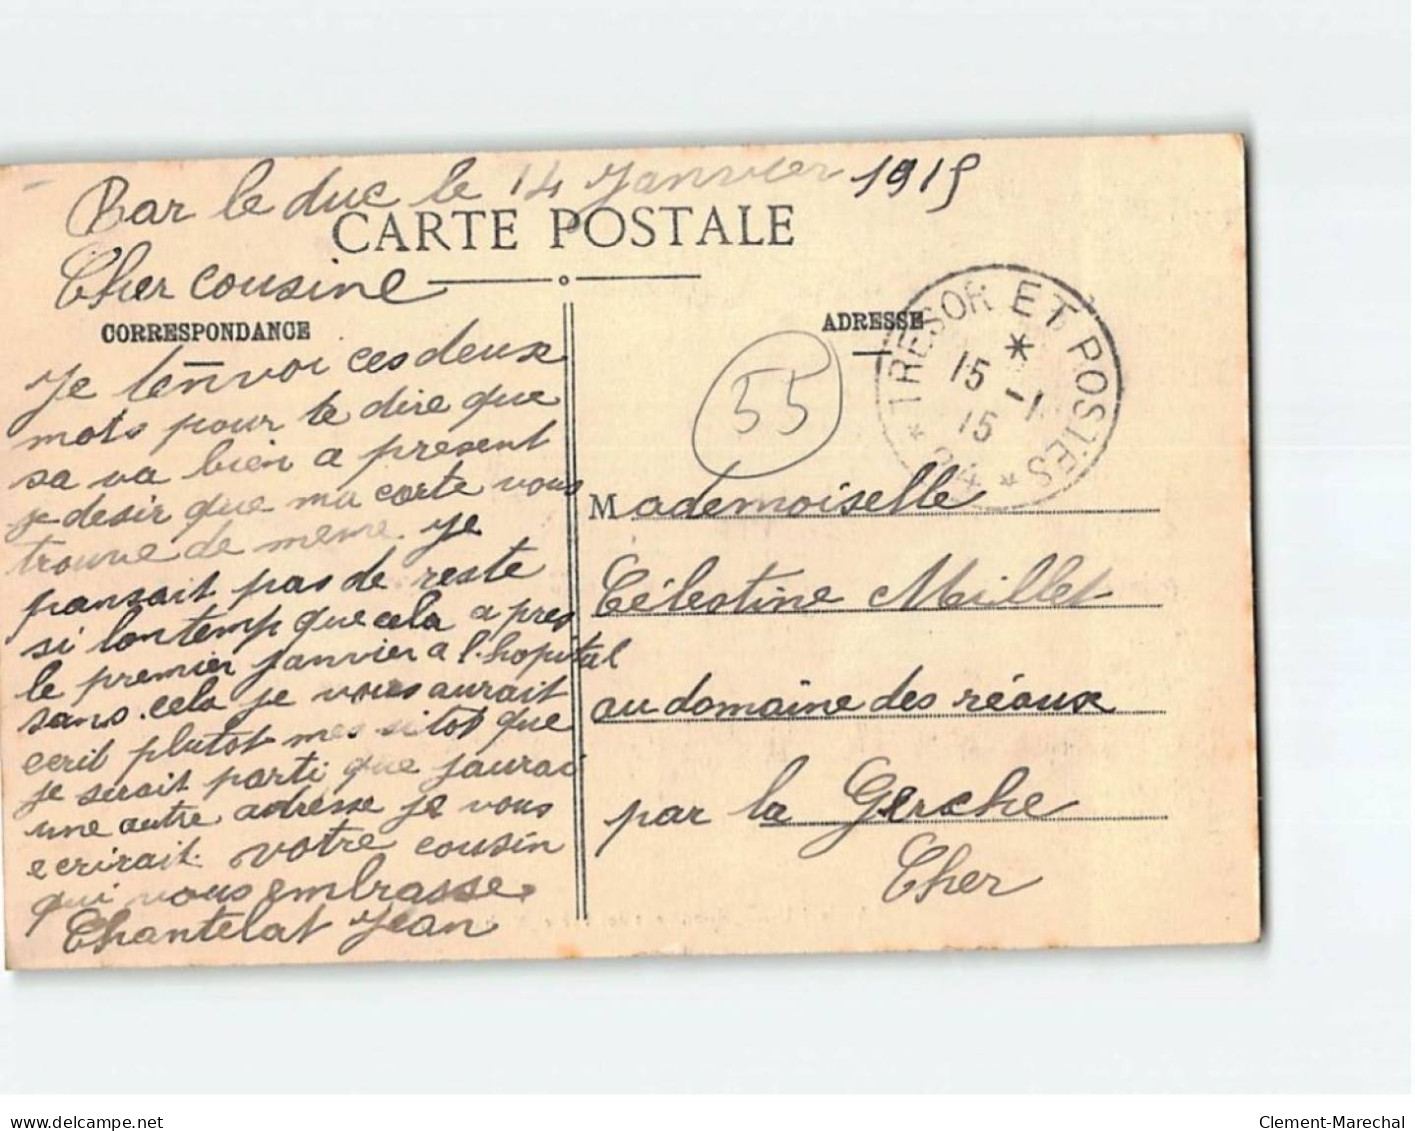 Bar le duc le 14 Janvier 1915
CARTE POSTALE
Cher cousine
CORRESPONDANCE
Je t'envoi ces deux
mots pour te dire que
sa va bien a present
je desir que ma carte vous
trouve de meme Je
pansait pas de reste
si lontemp que cela a pres
le premier janvier a l'hopital
sans cela je vous aurait
ecrit plutot mes sitot que
je serait parti que j'aurai
une autre adresse je vous
ecrirait votre cousin
qui vous embrasse
Chantelat Jean
ADRESSE
TRESOR ET POSTES
15 -1
15
* 24 *
55
Mademoiselle
Célestine Millet
au domaine des réaux
par la Gerche
Cher
delcampe.net
Clement-Marechal